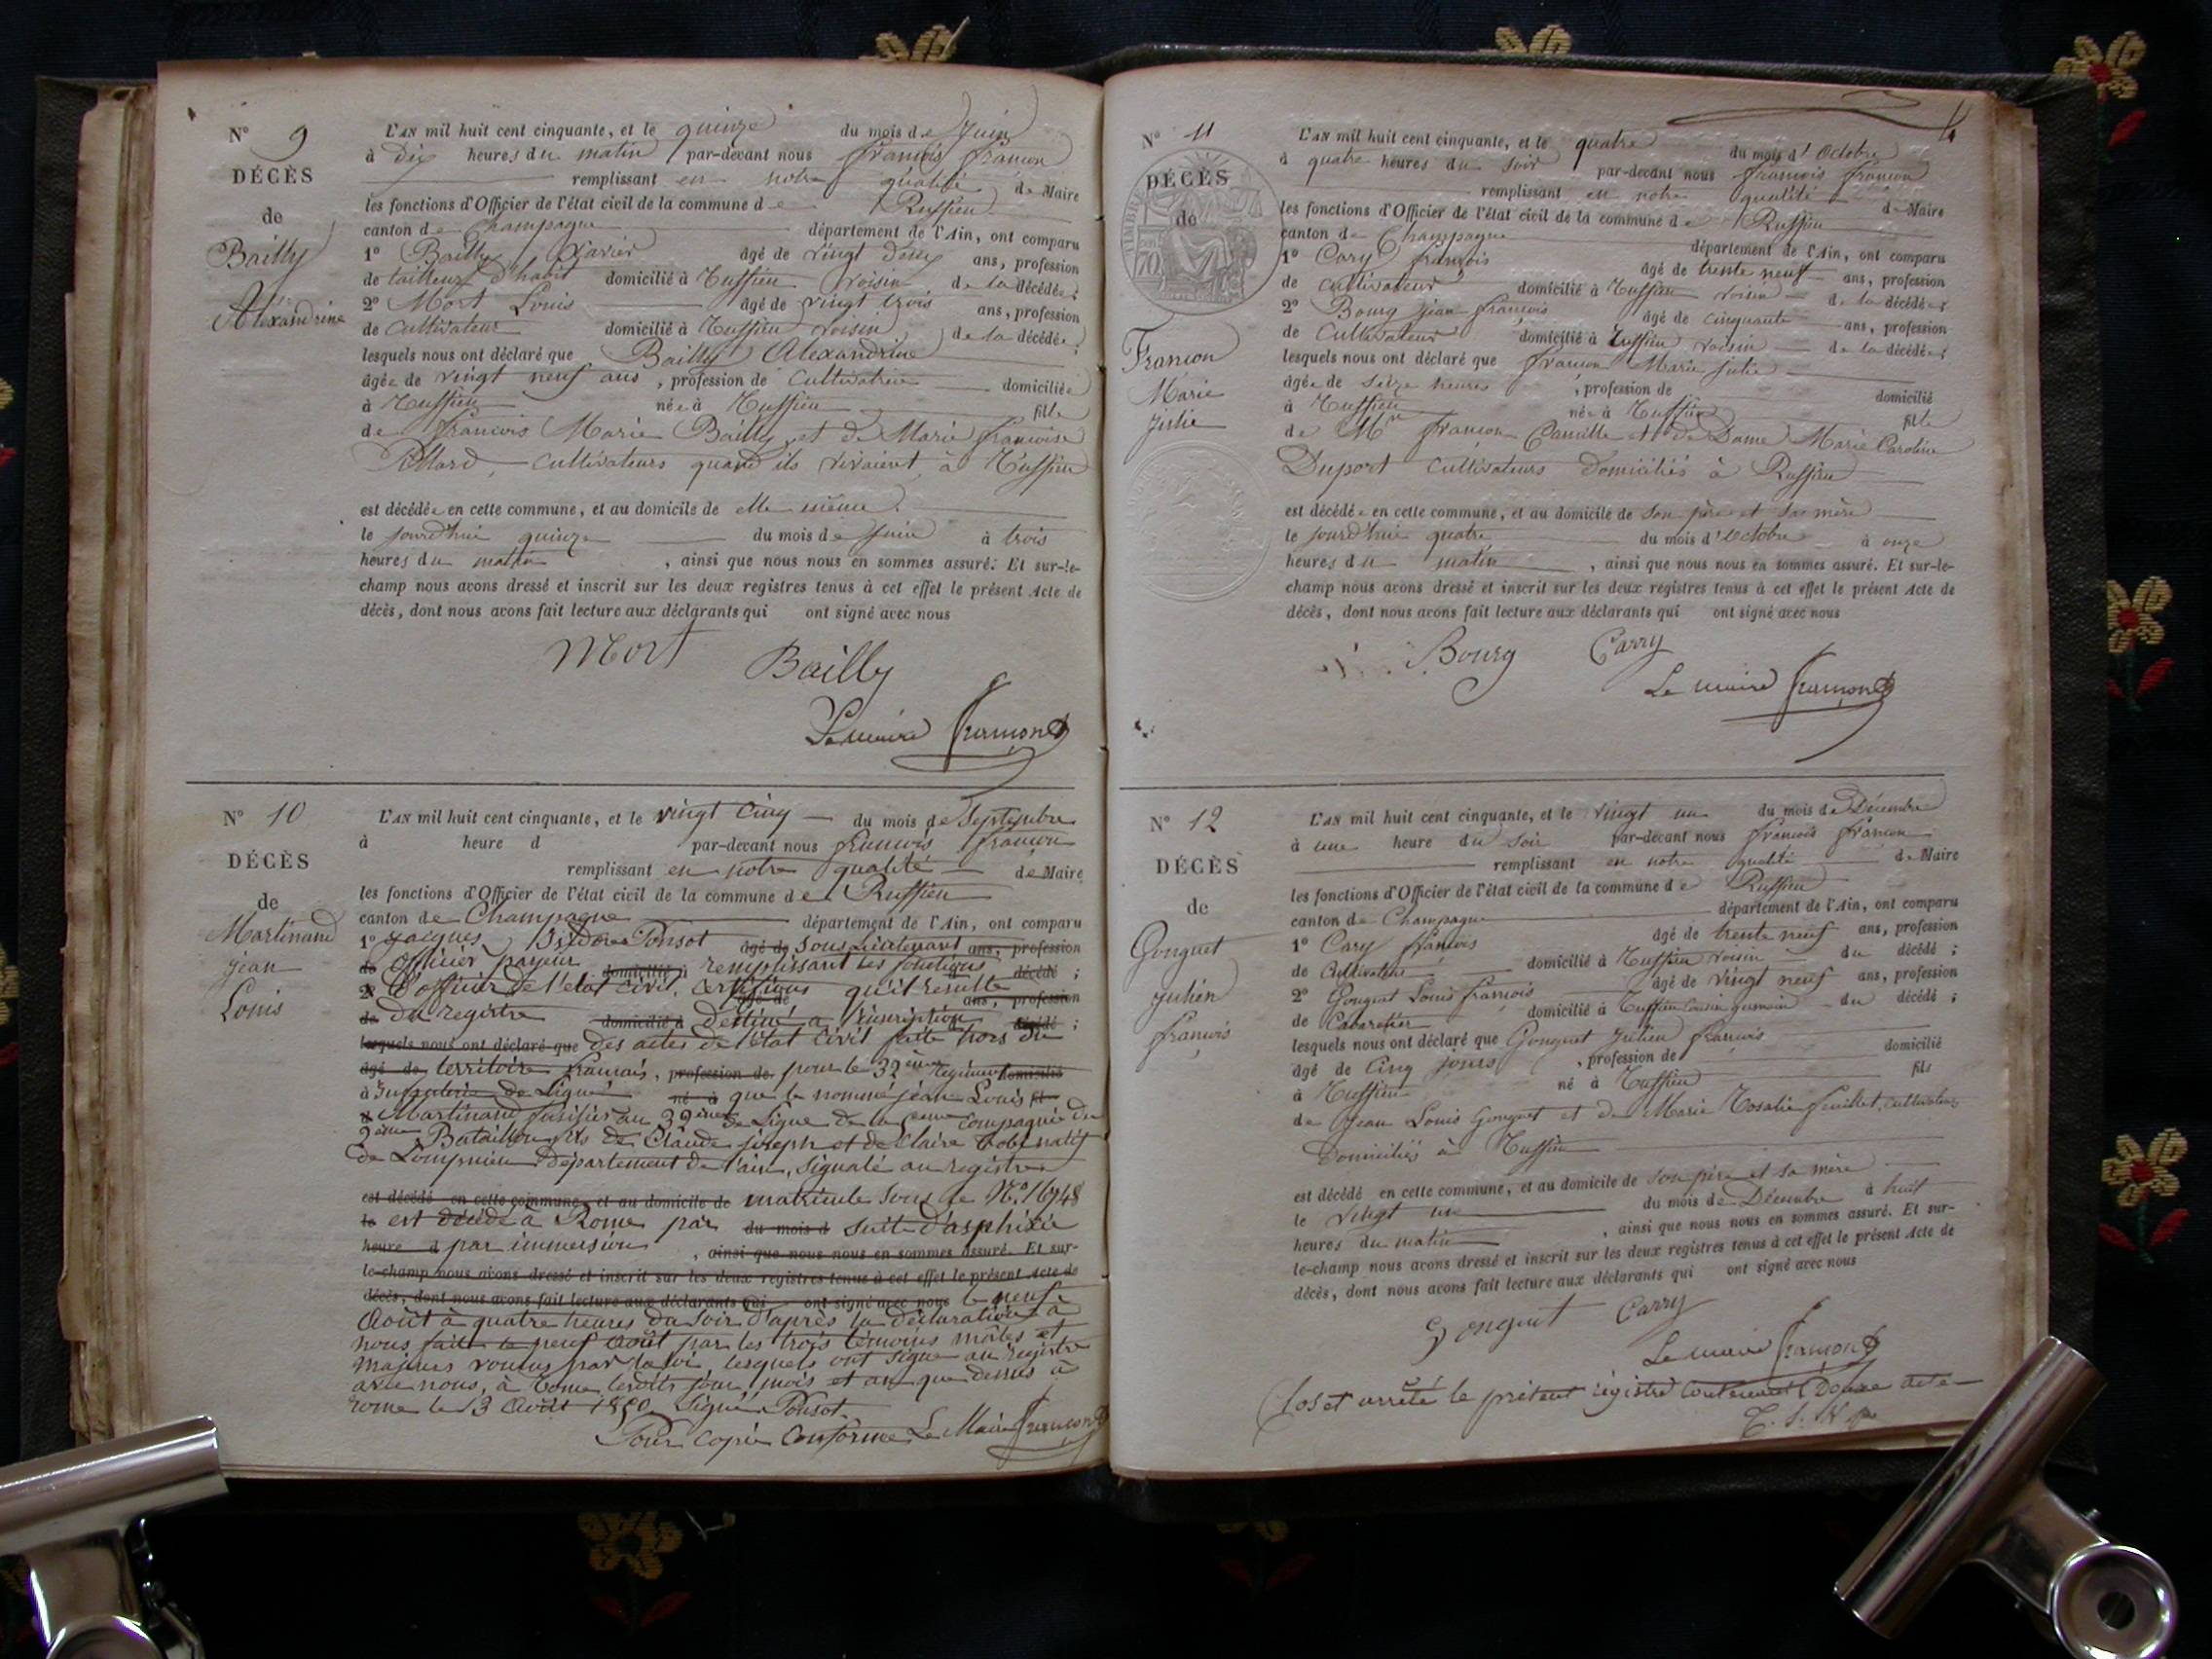 N° 9
DÉCÈS
de
Bailly
Alexandrine
L'AN mil huit cent cinquante, et le quinze du mois de Juin
à dix heures du matin par-devant nous françois françon
remplissant en notre qualité de Maire
les fonctions d'Officier de l'état civil de la commune de Ruffieu
canton de Champagne département de l'Ain, ont comparu
1° Bailly Xavier âgé de vingt deux ans, profession
de tailleur d'habit domicilié à Ruffieu voisin de la décédée;
2° Mort Louis âgé de vingt trois ans, profession
de cultivateur domicilié à Ruffieu voisin de la décédée;
lesquels nous ont déclaré que Bailly Alexandrine
âgée de vingt neuf ans, profession de cultivatrice domiciliée
à Ruffieu née à Ruffieu fille
de françois Marie Bailly et de Marie françoise
cultivateurs quand ils vivaient à Ruffieu
est décédée en cette commune, et au domicile de elle même
le jourd'hui quinze du mois de Juin à trois
heures du matin, ainsi que nous nous en sommes assuré. Et sur-le-
champ nous avons dressé et inscrit sur les deux registres tenus à cet effet le présent Acte de
décès, dont nous avons fait lecture aux déclarants qui ont signé avec nous
Mort Bailly
Le maire françon
N° 10
DÉCÈS
de
Martinand
jean
Louis
L'AN mil huit cent cinquante, et le vingt cinq du mois de Septembre
à heure d par-devant nous françois françon
remplissant en notre qualité de Maire
les fonctions d'Officier de l'état civil de la commune de Ruffieu
canton de Champagne département de l'Ain, ont comparu
1° Jacques Isidore Ponsot âgé de sous Lieutenant ans, profession
de officier payeur domicilié à remplissant les fonctions décédé;
2° d'officier de l'état civil, certifions âgé de qu'il resulte ans, profession
de du registre domicilié à destiné a l'inscription décédé;
lesquels nous ont déclaré que des actes de l'état civil faits hors du
âgé de territoire français, profession de pour le 32ème régiment domicilié
à infanterie de Ligne né à que le nommé jean Louis fils
de Martinand fusilier au 32ème de Ligne de la compagnie du
2ème Bataillon fils de Claude joseph et de Claire natif
de Lompnieu département de l'ain, signalé au registre
est décédé en cette commune, et au domicile de matricule sous le N° 16948
le est décédé à Rome par du mois d suite d'asphixie
heure d par immersion, ainsi que nous nous en sommes assuré. Et sur-
le-champ nous avons dressé et inscrit sur les deux registres tenus à cet effet le présent Acte de
décès, dont nous avons fait lecture aux déclarants qui ont signé avec nous le neuf
Août à quatre heures du soir d'après la déclaration à
nous faite le neuf Août par les trois témoins mâles et
majeurs voulus par la loi, lesquels ont signé au registre
avec nous, à Rome lesdits jour, mois et an que dessus à
rome le 13 Août 1850 signé Ponsot.
Pour copie conforme Le Maire françon
N° 11
DÉCÈS
de
Françon
Marie
Julie
L'AN mil huit cent cinquante, et le quatre du mois d'Octobre
à quatre heures du soir par-devant nous françois françon
remplissant en notre qualité de Maire
les fonctions d'Officier de l'état civil de la commune de Ruffieu
canton de Champagne département de l'Ain, ont comparu
1° Cary françois âgé de trente neuf ans, profession
de cultivateur domicilié à Ruffieu voisin de la décédée;
2° Bourg jean françois âgé de cinquante ans, profession
de Cultivateur domicilié à Ruffieu voisin de la décédée;
lesquels nous ont déclaré que françon Marie Julie
âgée de seize heures, profession de domicilié
à Ruffieu née à Ruffieu fille
de Mr françon Camille et de Dame Marie Caroline
Duport cultivateurs domiciliés à Ruffieu
est décédée en cette commune, et au domicile de son père et sa mère
le jourd'hui quatre du mois d'Octobre à onze
heures du matin, ainsi que nous nous en sommes assuré. Et sur-le-
champ nous avons dressé et inscrit sur les deux registres tenus à cet effet le présent Acte de
décès, dont nous avons fait lecture aux déclarants qui ont signé avec nous
Bourg Carry
Le maire françon
N° 12
DÉCÈS
de
Gonguet
julien
françois
L'AN mil huit cent cinquante, et le vingt un du mois de Décembre
à une heure du soir par-devant nous francois françon
remplissant en notre qualité de Maire
les fonctions d'Officier de l'état civil de la commune de Ruffieu
canton de Champagne département de l'Ain, ont comparu
1° Cary françois âgé de trente neuf ans, profession
de cultivateur domicilié à Ruffieu voisin du décédé;
2° Gonguet Louis françois âgé de vingt neuf ans, profession
de Cabaretier domicilié à Ruffieu cousin germain du décédé;
lesquels nous ont déclaré que Gonguet Julien françois
âgé de cinq jours, profession de domicilié
à Ruffieu né à Ruffieu fils
de Jean Louis Gonguet et de Marie Rosalie feuillet, cultivateurs
domiciliés à Ruffieu
est décédé en cette commune, et au domicile de son père et sa mère
le vingt un du mois de Décembre à huit
heures du matin, ainsi que nous nous en sommes assuré. Et sur-
le-champ nous avons dressé et inscrit sur les deux registres tenus à cet effet le présent Acte de
décès, dont nous avons fait lecture aux déclarants qui ont signé avec nous
Gonguet Carry
Le maire françon
Clos et arrêté le présent régistre contenant Douze acte